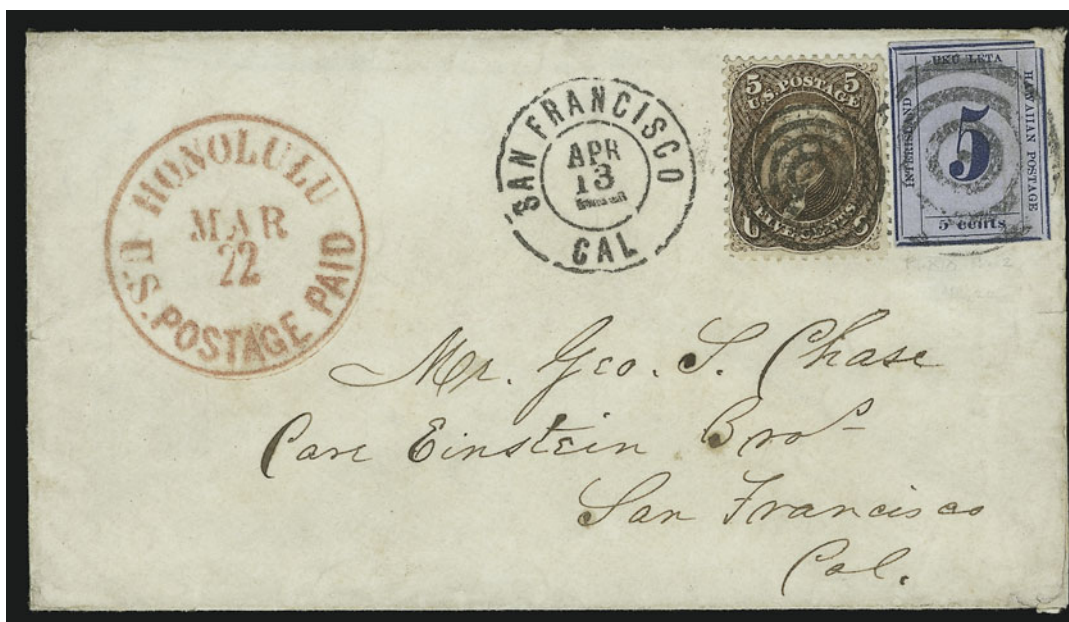 HONOLULU
MAR
22
U.S. POSTAGE PAID
SAN FRANCISCO
APR
13
CAL
5 5
U.S. POSTAGE
FIVE CENTS
UKU LETA
INTERISLAND
HAWAIIAN POSTAGE
5
5 cents
Mr. Geo. S. Chase
Care Einstein Bros
San Francisco
Cal.